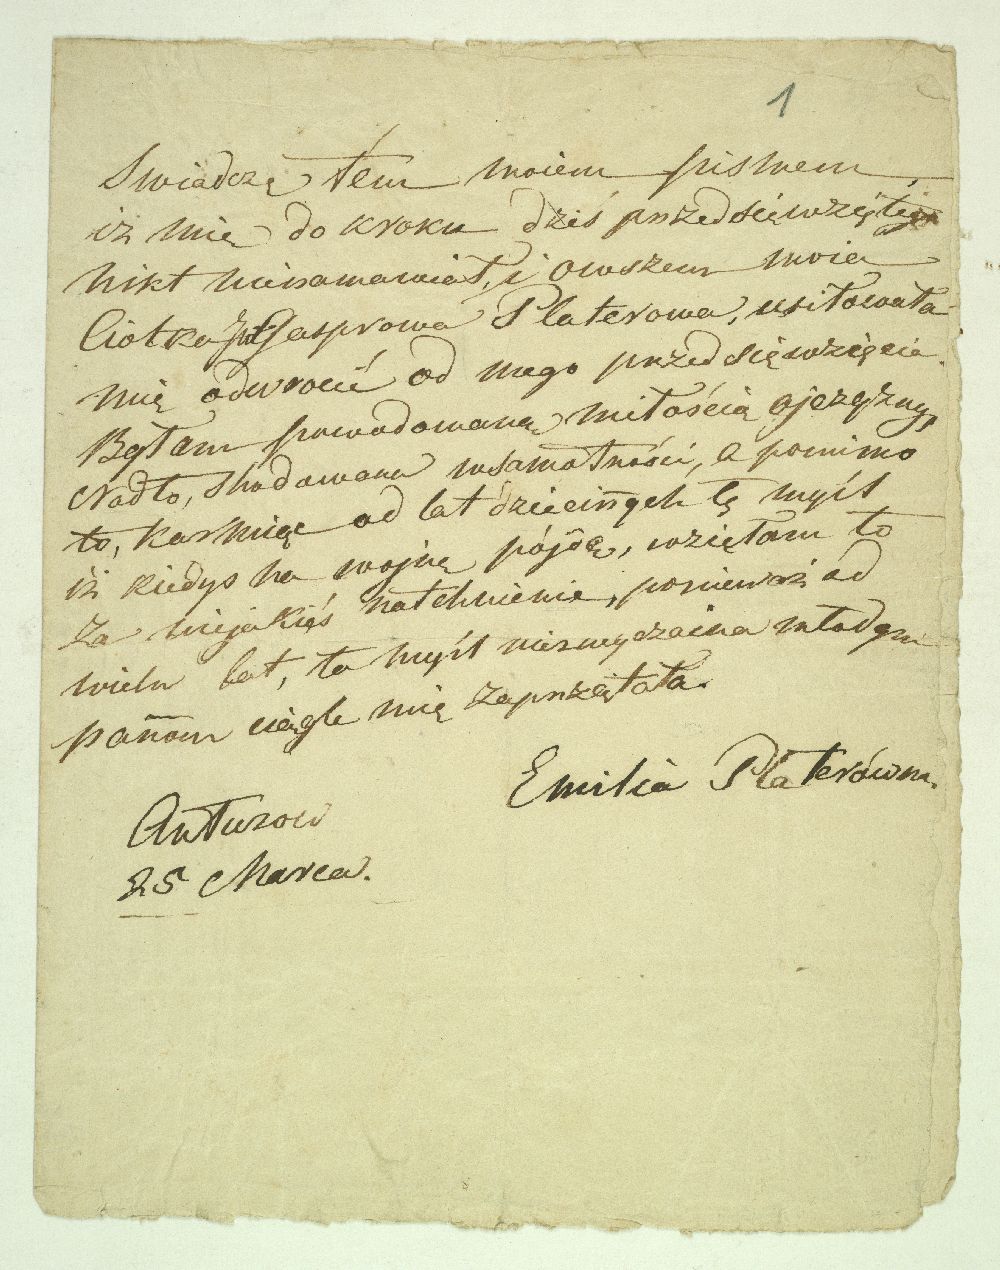 1
Swiadczę tem moiem pismem
iż mię do kroku dziś przedsięwziętego
nikt nienamawiał, i owszem moia
Ciotka Gasprowa Platerowa, usiłowała
mię odwrocić od mego przedsięwzięcia.
Byłam powodowaną miłością ojczyzny,
Nadto, hodowana w samotności, a pomimo
to, karmiąc od lat dziecinnych tę myśl
iż kiedys na wojnę pójdę, wzięłam to
za niejakięś natchnienie, ponieważ od
wielu lat, ta myśl niezwyczaina młodym
pannom ciągle mię zaprzątała.
Emilia Platerówna.
Antuzow
25 Marca.